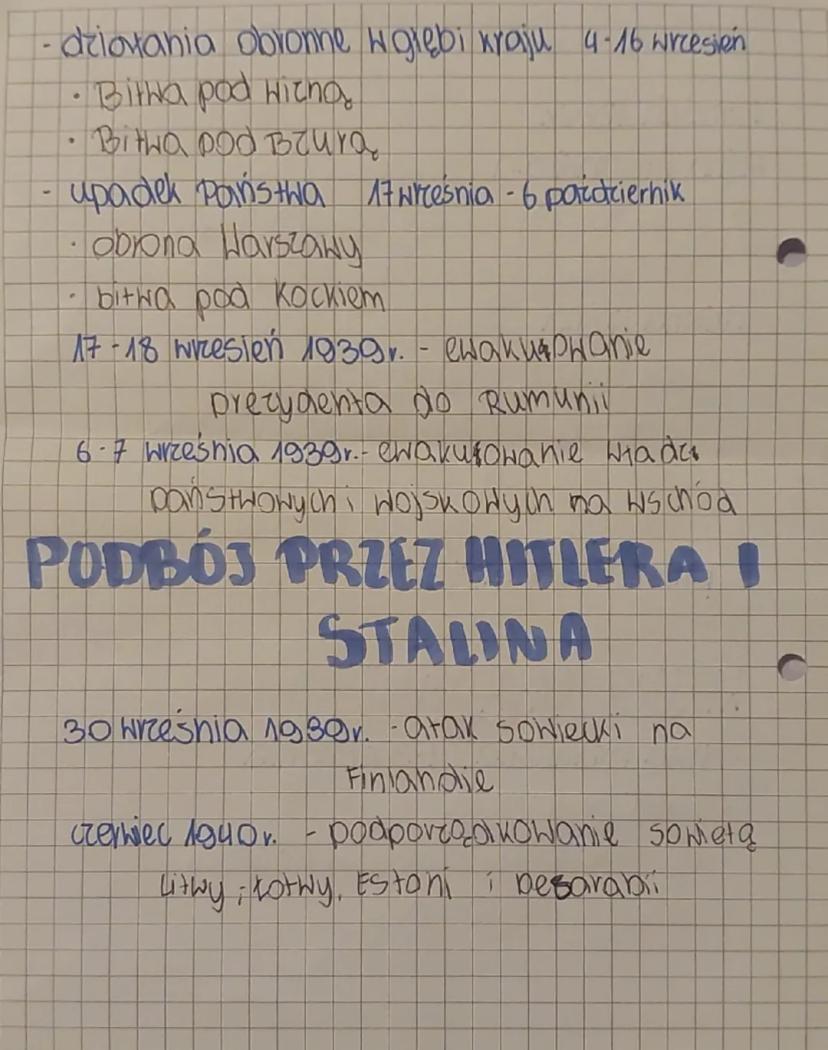 - działania obronne w głębi kraju 4-16 wrzesień
• Bitwa pod Wizną
• Bitwa pod Bzurą
- upadek państwa 17 września - 6 październik
• obrona Warszawy
• bitwa pod Kockiem
17-18 wrzesień 1939r. - ewakuowanie
prezydenta do Rumunii
6-7 września 1939r.- ewakuowanie władz
państwowych i wojskowych na wschód
PODBÓJ PRZEZ HITLERA I
STALINA
30 września 1939r. - atak sowiecki na
Finlandie
czerwiec 1940r. - podporządkowanie sowietą
Litwy, Łotwy, Estoni i Besarabii